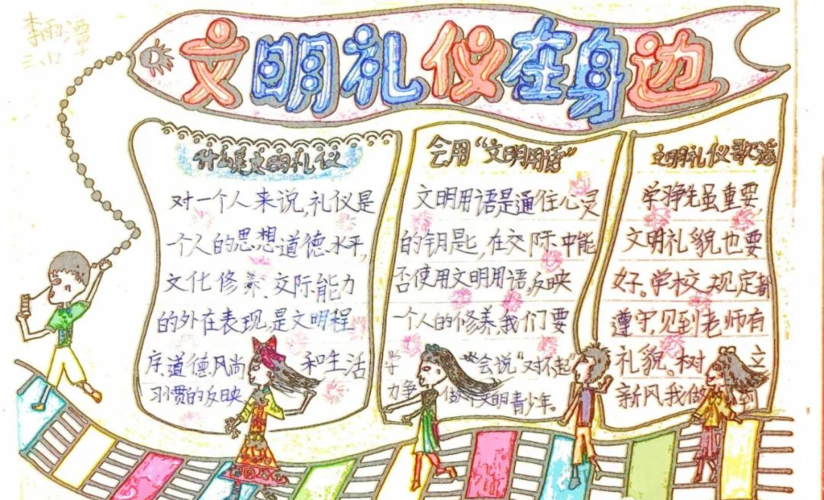 李雨潭
文明礼仪在身边
什么是文明礼仪
对一个人来说,礼仪是
一个人的思想道德水平,
文化修养、交际能力
的外在表现,是文明程
序,道德风尚 和生活
习惯的反映
会用“文明用语”
文明用语是通往心灵
的钥匙,在交际中能
否使用文明用语,反映
一个人的修养,我们要
学 会说“对不起”
力争 做个文明青少年。
文明礼仪歌谣
学习争先虽重要
文明礼貌也要
好。学校规定都
遵守,见到老师有
礼貌。树 立
新风我做